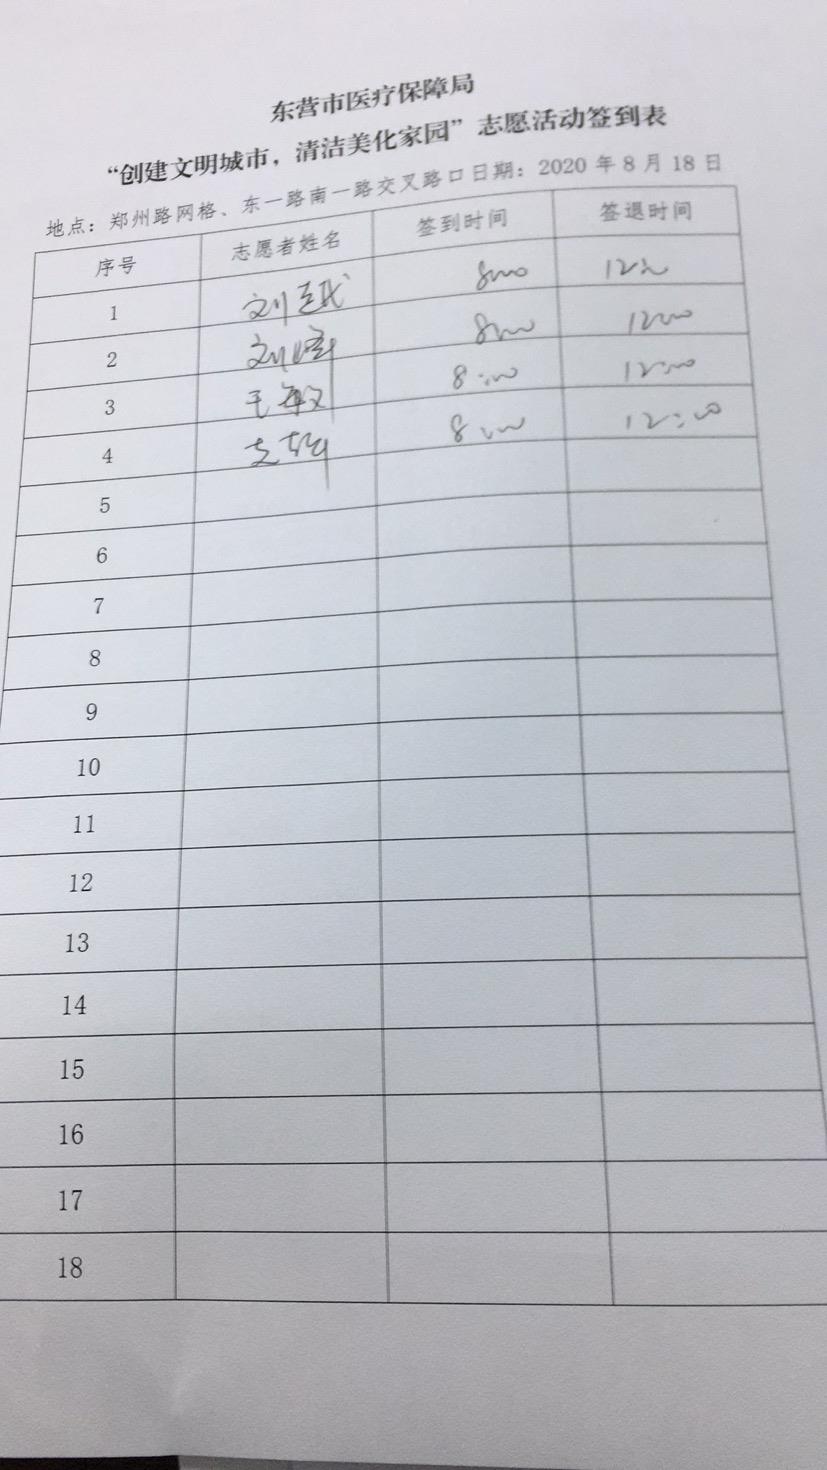 东营市医疗保障局
“创建文明城市，清洁美化家园”志愿活动签到表
地点：郑州路网格、东一路南一路交叉路口日期：2020 年 8 月 18 日
序号 志愿者姓名 签到时间 签退时间
1 刘 8:00 12:00
2 刘 8:00 12:00
3 王敏 8:00 12:00
4 8:00 12:00
5
6
7
8
9
10
11
12
13
14
15
16
17
18